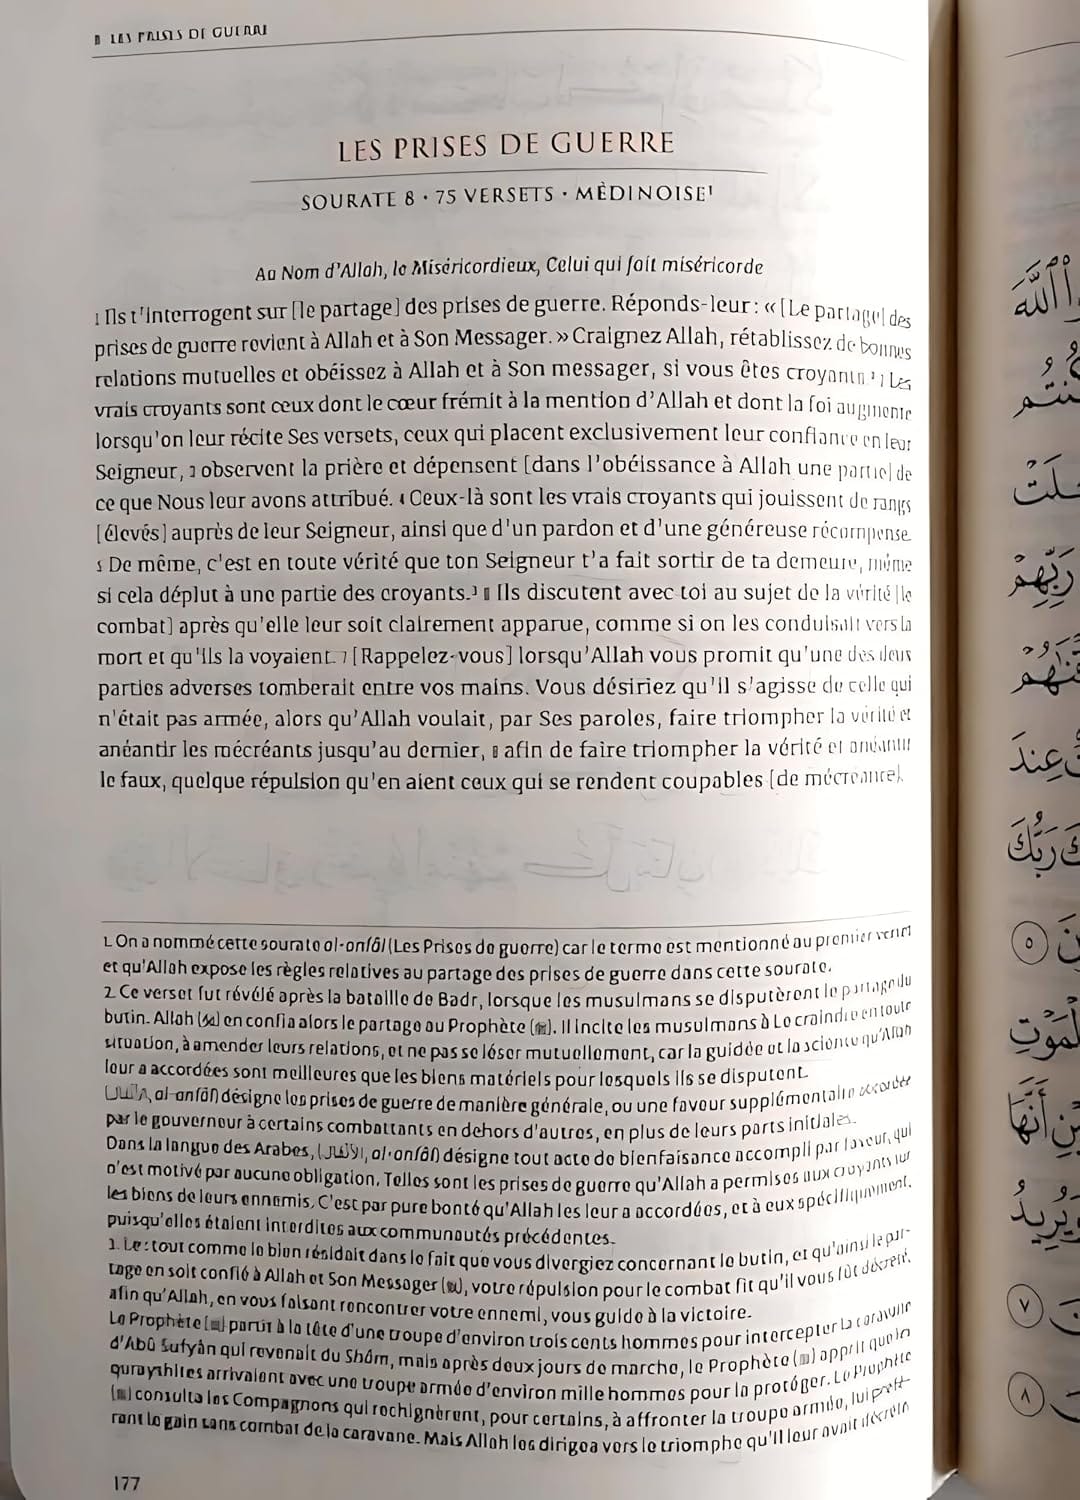 8 LES PRISES DE GUERRE
LES PRISES DE GUERRE
SOURATE 8 • 75 VERSETS • MÉDINOISE¹
Au Nom d'Allah, le Miséricordieux, Celui qui fait miséricorde
1 Ils t'interrogent sur [le partage] des prises de guerre. Réponds-leur : « [Le partage] des
prises de guerre revient à Allah et à Son Messager. » Craignez Allah, rétablissez de bonnes
relations mutuelles et obéissez à Allah et à Son messager, si vous êtes croyants.² 2 Les
vrais croyants sont ceux dont le cœur frémit à la mention d'Allah et dont la foi augmente
lorsqu'on leur récite Ses versets, ceux qui placent exclusivement leur confiance en leur
Seigneur, 3 observent la prière et dépensent [dans l'obéissance à Allah une partie] de
ce que Nous leur avons attribué. 4 Ceux-là sont les vrais croyants qui jouissent de rangs
[élevés] auprès de leur Seigneur, ainsi que d'un pardon et d'une généreuse récompense.
5 De même, c'est en toute vérité que ton Seigneur t'a fait sortir de ta demeure, même
si cela déplut à une partie des croyants.³ 6 Ils discutent avec toi au sujet de la vérité [le
combat] après qu'elle leur soit clairement apparue, comme si on les conduisait vers la
mort et qu'ils la voyaient. 7 [Rappelez-vous] lorsqu'Allah vous promit qu'une des deux
parties adverses tomberait entre vos mains. Vous désiriez qu'il s'agisse de celle qui
n'était pas armée, alors qu'Allah voulait, par Ses paroles, faire triompher la vérité et
anéantir les mécréants jusqu'au dernier, 8 afin de faire triompher la vérité et anéantir
le faux, quelque répulsion qu'en aient ceux qui se rendent coupables [de mécréance].
1. On a nommé cette sourate al-anfâl (Les Prises de guerre) car le terme est mentionné au premier verset
et qu'Allah expose les règles relatives au partage des prises de guerre dans cette sourate.
2. Ce verset fut révélé après la bataille de Badr, lorsque les musulmans se disputèrent le partage du
butin. Allah () en confia alors le partage au Prophète (ﷺ). Il incite les musulmans à Le craindre en toute
situation, à amender leurs relations, et ne pas se léser mutuellement, car la guidée et la science qu'Allah
leur a accordées sont meilleures que les biens matériels pour lesquels ils se disputent.
al-anfâl) désigne les prises de guerre de manière générale, ou une faveur supplémentaire accordée
par le gouverneur à certains combattants en dehors d'autres, en plus de leurs parts initiales.
Dans la langue des Arabes, (الأنفال, al-anfâl) désigne tout acte de bienfaisance accompli par faveur, qui
n'est motivé par aucune obligation. Telles sont les prises de guerre qu'Allah a permises aux croyants sur
les biens de leurs ennemis. C'est par pure bonté qu'Allah les leur a accordées, et à eux spécifiquement,
puisqu'elles étaient interdites aux communautés précédentes.
3. Le : tout comme le bien résidait dans le fait que vous divergiez concernant le butin, et qu'ainsi le par-
tage en soit confié à Allah et Son Messager (ﷺ), votre répulsion pour le combat fit qu'il vous fût décrété,
afin qu'Allah, en vous faisant rencontrer votre ennemi, vous guide à la victoire.
Le Prophète (ﷺ) partit à la tête d'une troupe d'environ trois cents hommes pour intercepter la caravane
d'Abû Sufyân qui revenait du Shâm, mais après deux jours de marche, le Prophète (ﷺ) apprit que les
qurayshites arrivaient avec une troupe armée d'environ mille hommes pour la protéger. Le Prophète
(ﷺ) consulta les Compagnons qui rechignèrent, pour certains, à affronter la troupe armée, lui préfé-
rant le gain sans combat de la caravane. Mais Allah les dirigea vers le triomphe qu'Il leur avait décrété
177
الله
رَبِّهِمْ
عِندَ
رَبُّكَ
٥
الْمَوْتِ
أَنَّهَا
وَيُرِيدُ
٧
٨